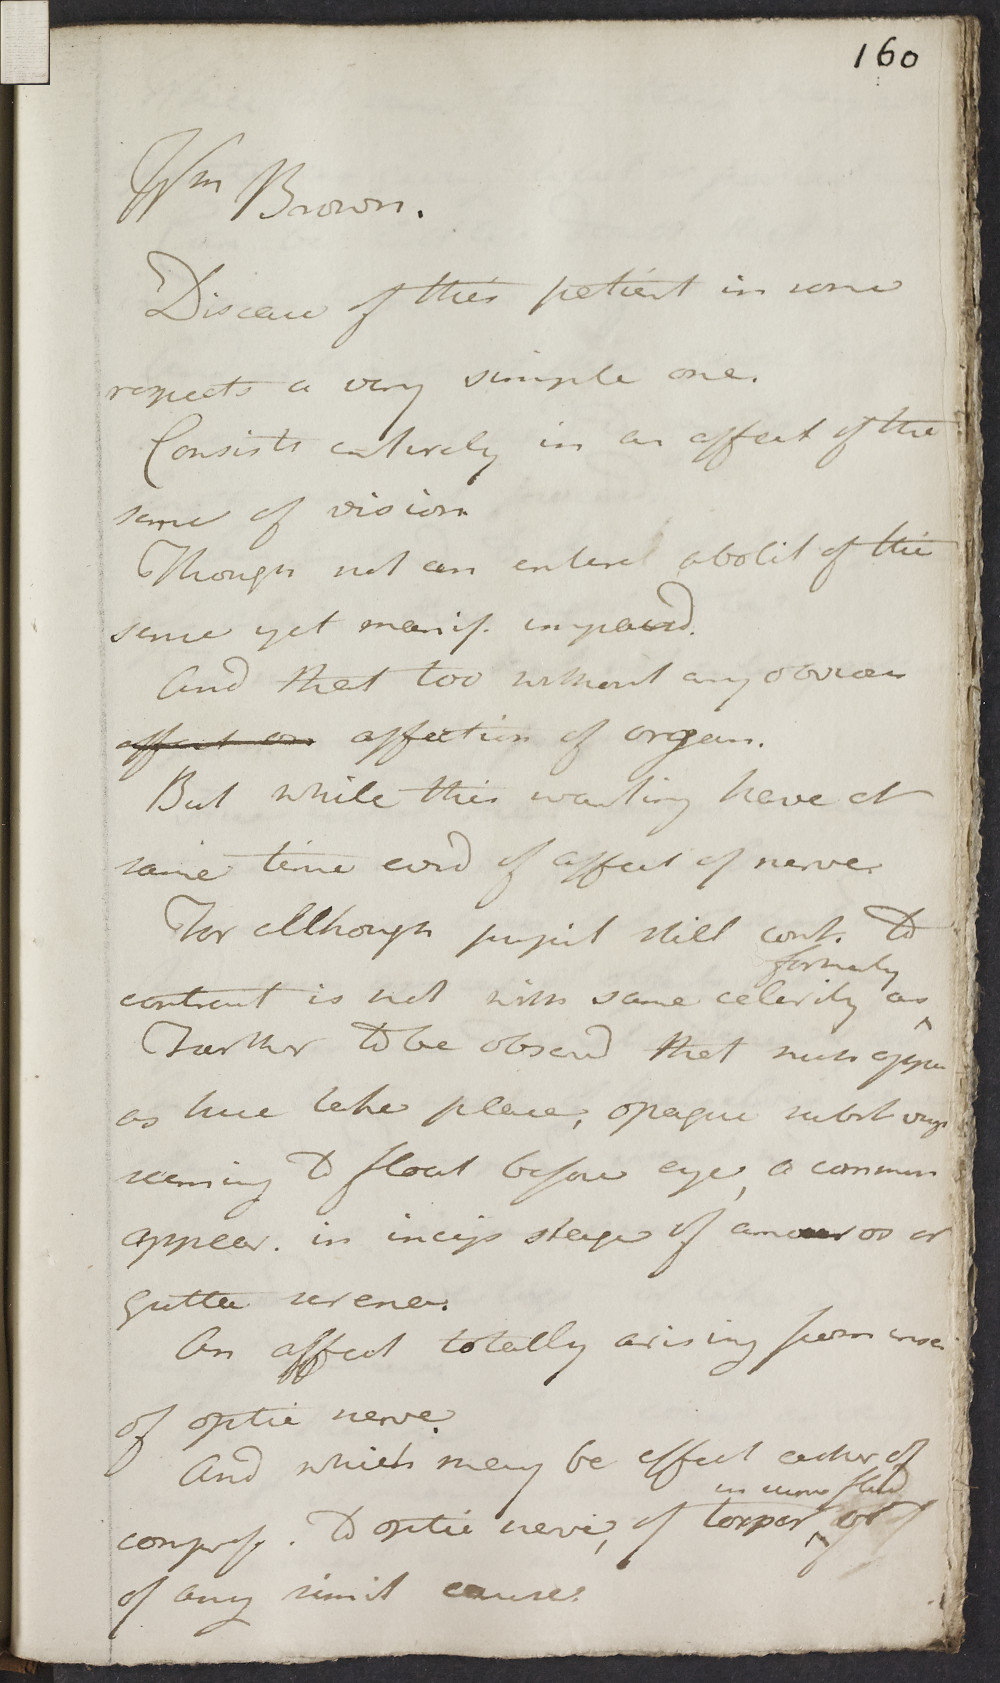 160
Wm Brown.
Disease of this patient in some
respects a very simple one.
Consists entirely in an affect of the
sense of vision
Though not an entire abolit of this
sense yet manif. impaird.
And that too without any obvious
affect on affection of organ.
But while this wanting have at
same time evid of affect of nerve
For although pupil still cont. to
formerly
contract is not with same celerity as ^
Farther to be observd that such appea
as here take place, opaque subst
seeming to float before eye, a common
appear. in incip stage of amauros or
gutta serena.
An affect totally arising from
of optic nerve.
And which may be effect either of
in nerve fluid
compress. to optic nerve, of torpor ^ or
of any simil cause.